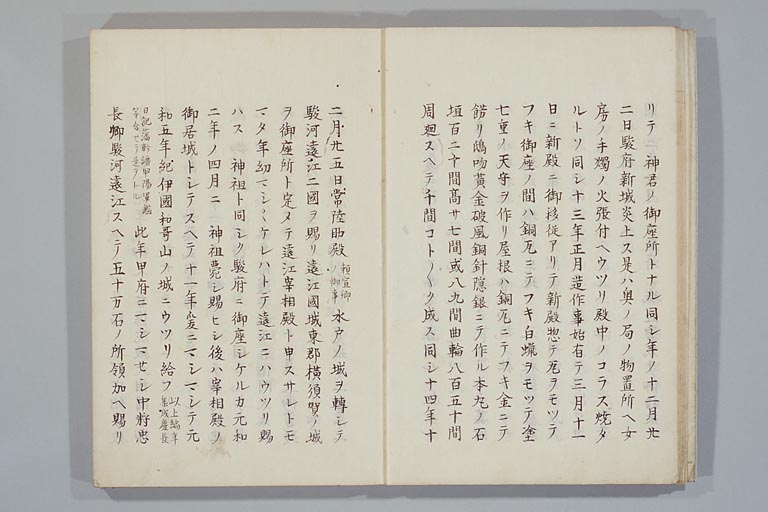 リテ 神君ノ御座所トナル同シ年ノ十二月廿
二日駿府新城炎上ス是ハ奥ノ局ノ物置所ヘ女
房ノ手燭ノ火張付ヘウツリ殿中ノコラス焼タ
ルトソ同シ十三年正月造作事始有テ三月十一
日ニ新殿ニ御移徙アリテ新殿惣テ瓦ヲモツテ
フキ御座ノ間ハ銅瓦ニテフキ白蝋ヲモツテ塗
七重ノ天守ヲ作リ屋根ハ銅瓦ニテフキ金ニテ
餝リ鴟吻黄金破風銅針隠銀ニテ作ル本丸ノ石
垣百二十間高サ七間或八九間曲輪八百五十間
周廻スヘテ千間コトノク成ス同シ十四年十
二月廿五日常陸助殿頼宣卿ノ御事水戸ノ城ヲ轉シテ
駿河遠江二國ヲ賜リ遠江國城東郡横須賀ノ城
ヲ御座所ト定メテ遠江宰相殿ト申スサレトモ
マタ年幼マシケレハトテ遠江ニハウツリ賜
ハス 神祖ト同シク駿府ニ御座シケルカ元和
二年ノ四月ニ 神祖薨シ賜ヒシ後ハ宰相殿ノ
御居城トシテスヘテ十一年爰ニマシマシテ元
和五年紀伊國和哥山ノ城ニウツリ給フ以上編年集成慶長
日記藩幹譜甲陽軍鑑等合セテ是ヲトル此年甲府ニマシマセシ中将忠
長卿駿河遠江スヘテ五十万石ノ所領加ヘ賜リ